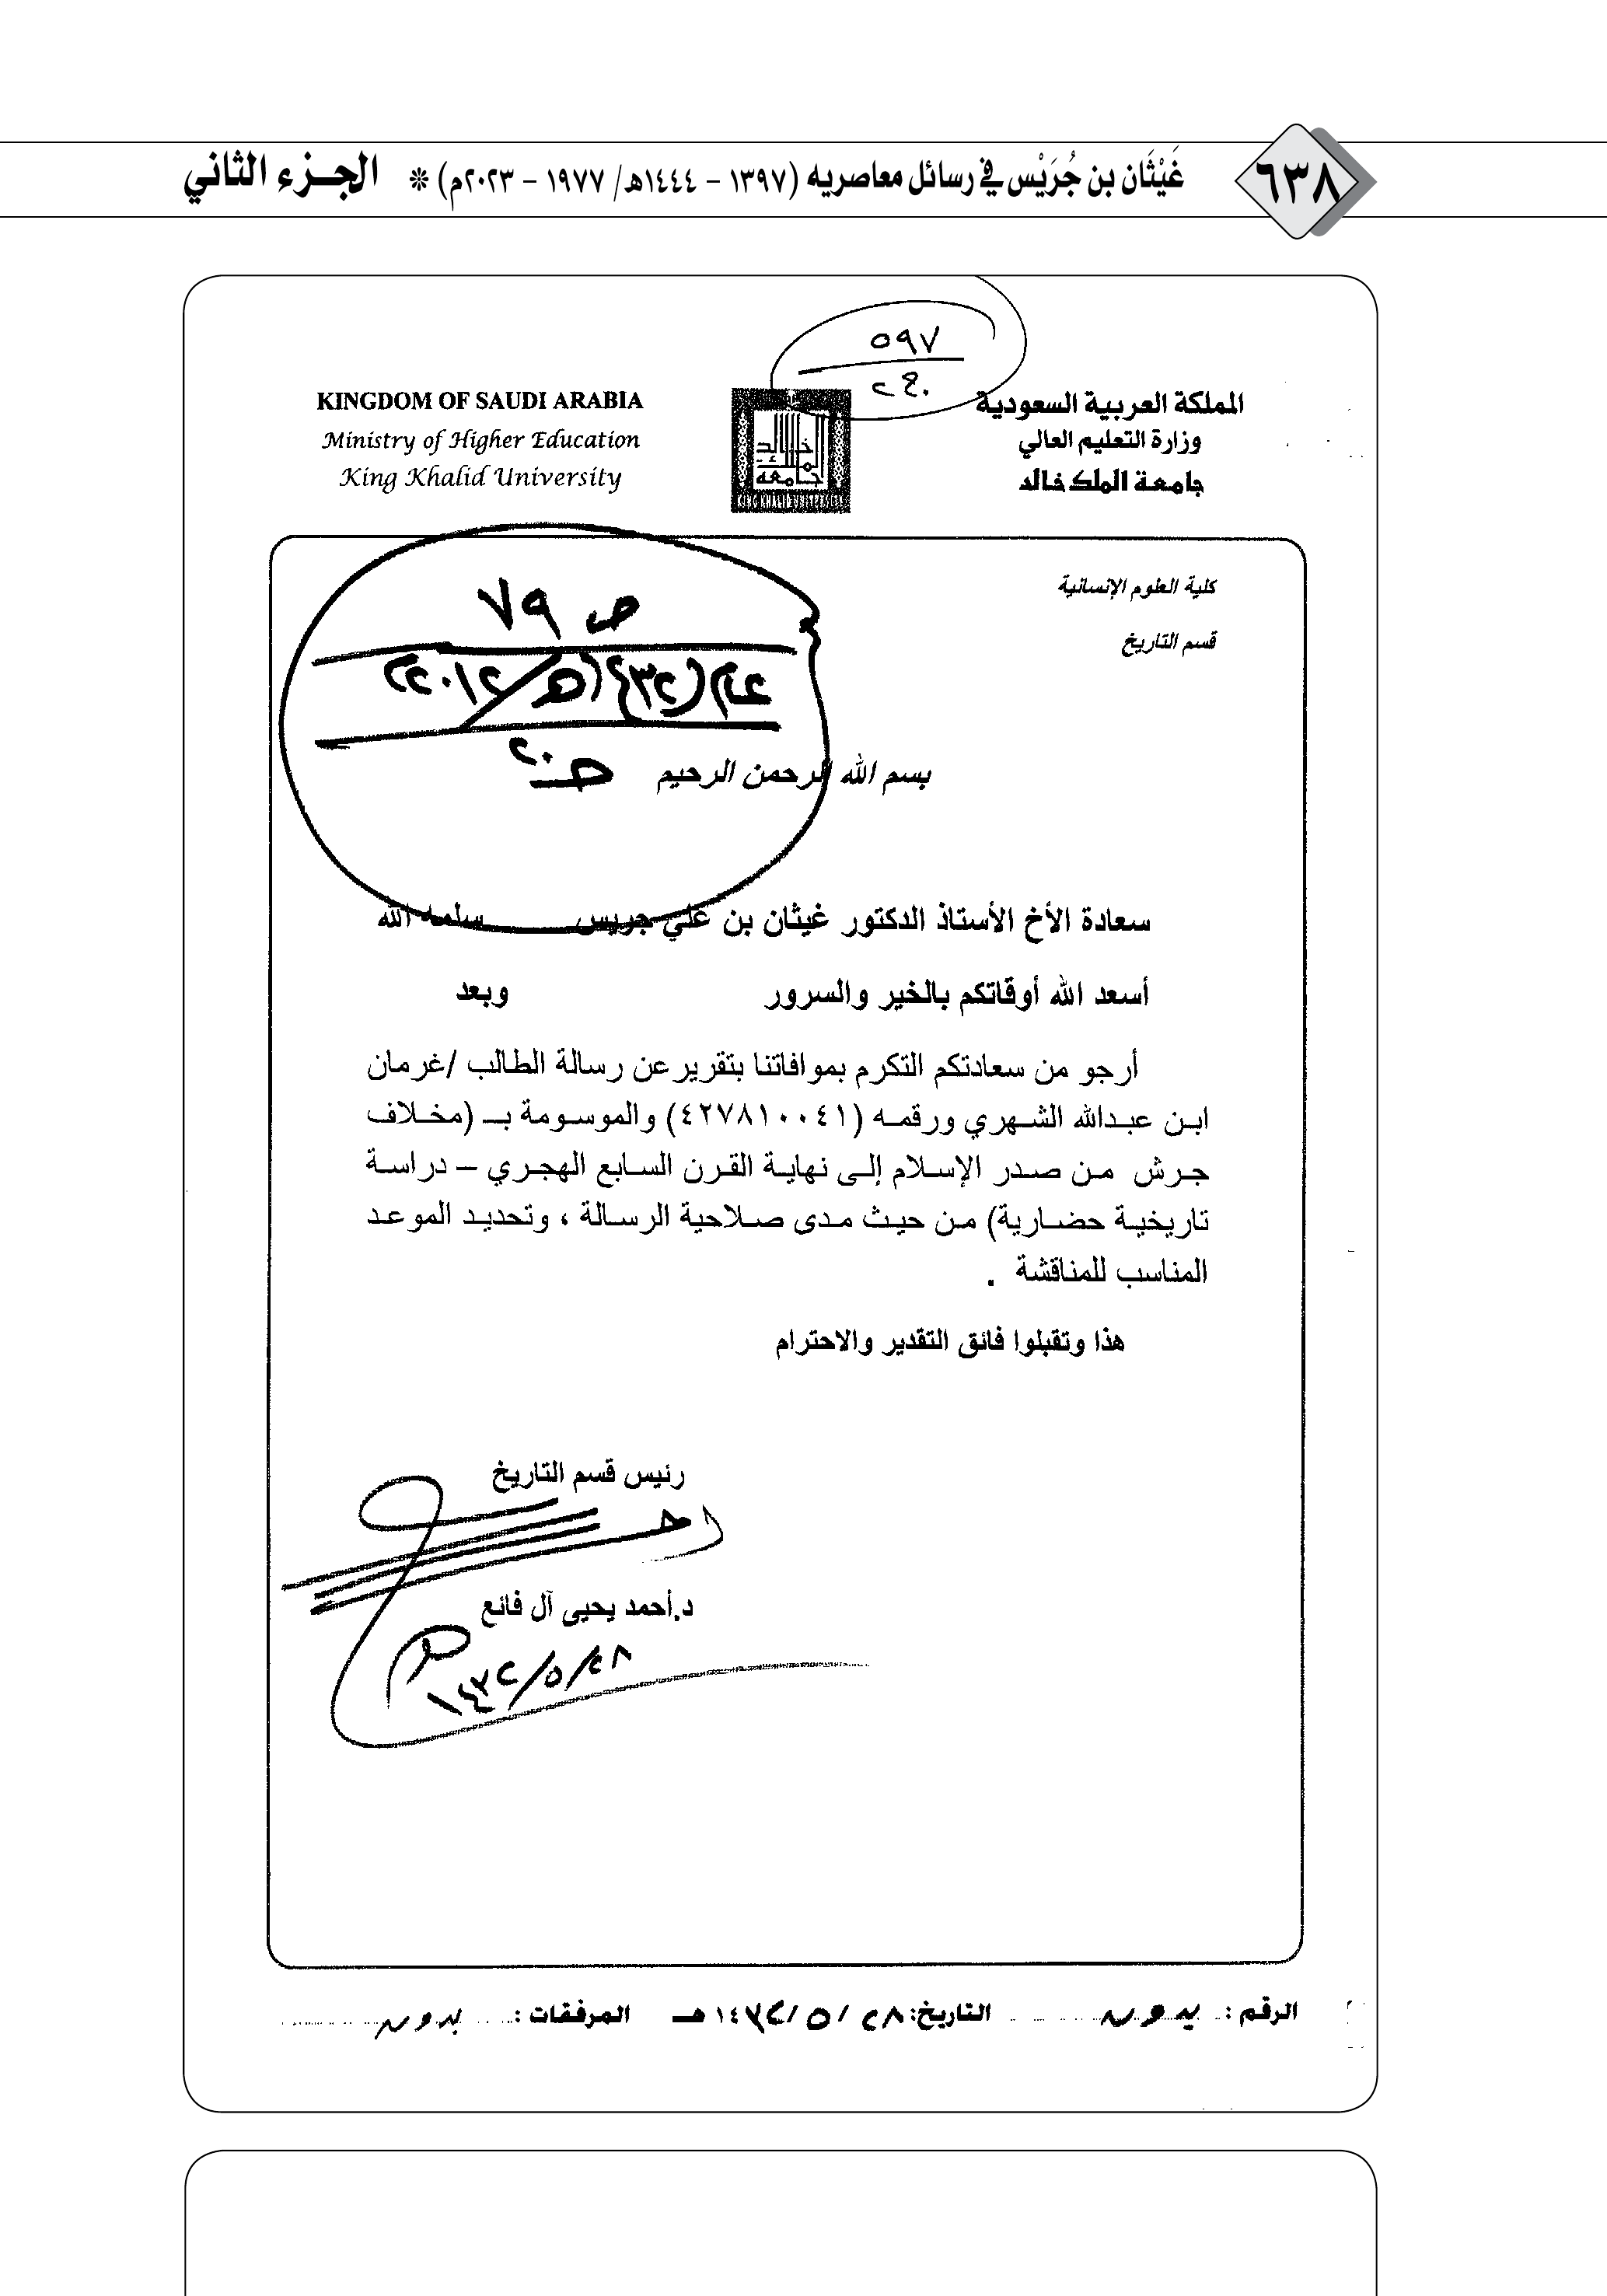 ٦٣٨
غَيْثَان بن جُرَيْس في رسائل معاصريه (١٣٩٧ – ١٤٤٤هـ/ ١٩٧٧ – ٢٠٢٣م) ❊ الجـزء الثاني
٥٩٧
المملكة العربية السعودية
وزارة التعليم العالي
جامعة الملك خالد
KINGDOM OF SAUDI ARABIA
Ministry of Higher Education
King Khalid University
KING KHALID UNIVERSITY
كلية العلوم الإنسانية
قسم التاريخ
ص ٧٩
بسم الله الرحمن الرحيم
سعادة الأخ الأستاذ الدكتور غيثان بن علي جريس سلمه الله
أسعد الله أوقاتكم بالخير والسرور وبعد
أرجو من سعادتكم التكرم بموافاتنا بتقرير عن رسالة الطالب /غرمان
ابن عبدالله الشهري ورقمه (٤٢٧٨١٠٠٤١) والموسومة بـ (مخلاف
جرش من صدر الإسلام إلى نهاية القرن السابع الهجري – دراسة
تاريخية حضارية) من حيث مدى صلاحية الرسالة ، وتحديد الموعد
المناسب للمناقشة .
هذا وتقبلوا فائق التقدير والاحترام
رئيس قسم التاريخ
د.أحمد يحيى آل فائع
١٤٣٢/٥/٢٨
الرقم : بدون التاريخ: ٢٨ / ٥ / ١٤٣٢ هـ المرفقات : بدون